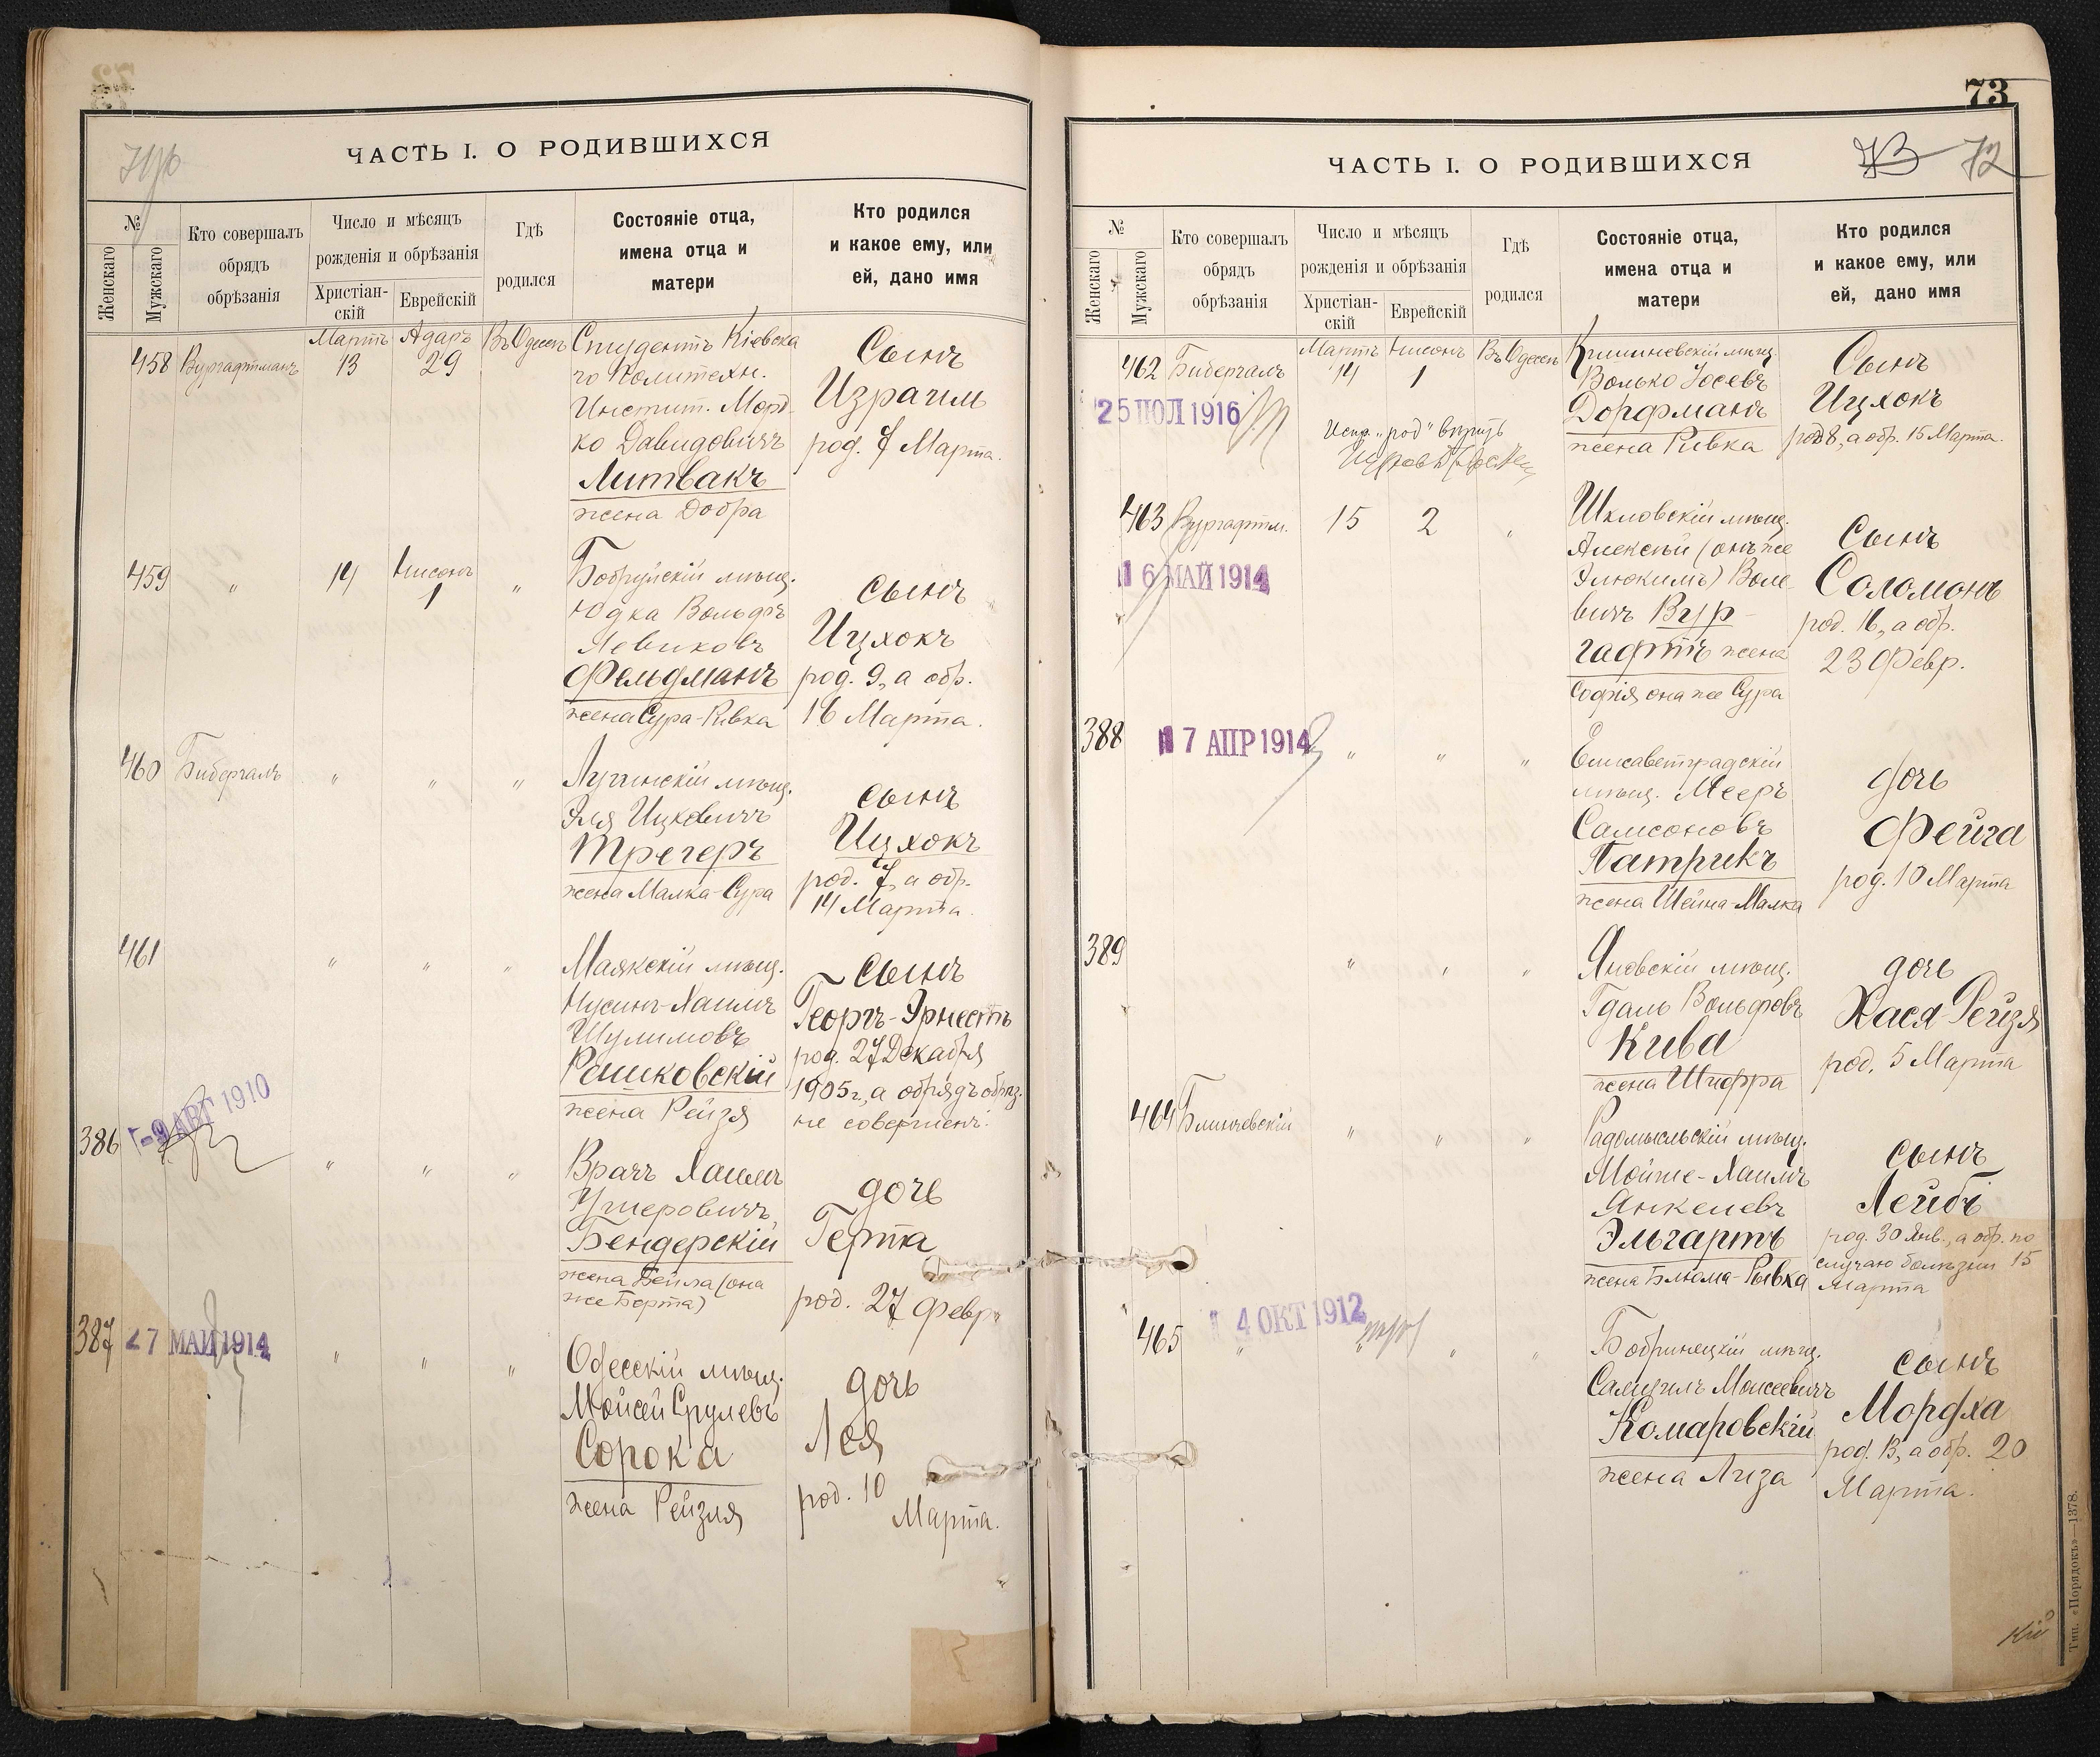 ЧАСТЬ I. О РОДИВШИХСЯ
№
Женскаго
Мужскаго
Кто совершалъ
обрядъ
обрѣзанія
Число и мѣсяцъ
рожденія и обрѣзанія
Христіан-
скій
Еврейскій
Гдѣ
родился
Состояніе отца,
имена отца и
матери
Кто родился
и какое ему, или
ей, дано имя
458
Вургафтманъ
Мартъ
13
Адаръ
29
Въ Одессѣ
Студентъ Кіевска
го Политехн.
Инстит. Морд-
ко Давидовичъ
Литвакъ
жена Добра
Сынъ
Израиль
род. 7 Марта.
459
"
14
Нисонъ
1
"
Бобруйскій мѣщ.
Юдка Вольфъ
Левиковъ
Фельдманъ
жена Сура-Ривка
сынъ
Ицхокъ
род. 9, а обр.
16 Марта.
460
Бибергалъ
"
"
"
Лугинскій мѣщ.
Эля Ицковичъ
Трегеръ
жена Малка-Сура
сынъ
Ицхокъ
род. 7, а обр.
14 Марта.
461
"
"
"
Маякскій мѣщ.
Нусинъ-Хаимъ
Шулимовъ
Рашковскій
жена Рейзя
сынъ
Георгъ-Эрнестъ
род. 27 Декабря
1905 г., а обрядъ обрѣз.
не совершенъ.
386
-9 АВГ 1910
"
"
"
Врачъ Хаимъ
Ушеровичъ
Бендерскій
жена Бейла (она
же Берта)
дочь
Герта
род. 27 Февр.
387
27 МАЙ 1914
"
"
"
Одесскій мѣщ.
Мойсей Срулевъ
Сорока
жена Рейзля
дочь
Лея
род. 10
Марта.
73
ЧАСТЬ I. О РОДИВШИХСЯ
73 72
№
Женскаго
Мужскаго
Кто совершалъ
обрядъ
обрѣзанія
Число и мѣсяцъ
рожденія и обрѣзанія
Христіан-
скій
Еврейскій
Гдѣ
родился
Состояніе отца,
имена отца и
матери
Кто родился
и какое ему, или
ей, дано имя
462
Бибергалъ
25 ІЮЛ 1916
Мартъ
14
Нисонъ
1
Въ Одессѣ
Испр. "род" вѣрить
Кишиневскій мѣщ.
Волько Іосевъ
Дорфманъ
жена Ривка
Сынъ
Ицхокъ
род. 8, а обр. 15 Марта.
463
Вургафтм.
16 МАЙ 1914
15
2
"
Шкловскій мѣщ.
Алексѣй (онъ же
Элюкимъ) Воле-
вичъ Вур-
гафтъ жена
Софія она же Сура
Сынъ
Соломонъ
род. 16, а обр.
23 Февр.
388
17 АПР 1914
"
"
"
Елисаветградскій
мѣщ. Мееръ
Самсоновъ
Патрикъ
жена Шейна-Малка
дочь
Фейга
род. 10 Марта
389
"
"
"
Яновскій мѣщ.
Гдаль Вольфовъ
Кива
жена Шифра
дочь
Хася-Рейзя
род. 5 Марта
464
Блинчевскій
"
"
"
Радомысльскій мѣщ.
Мойше-Хаимъ
Янкелевъ
Эльгартъ
жена Блюма-Рывка
сынъ
Лейбъ
род. 30 Янв., а обр. по
случаю болѣзни 15
Марта
465
"
4 ОКТ 1912
"
"
"
Бобринецкій мѣщ.
Самуилъ Моисеевичъ
Комаровскій
жена Лиза
сынъ
Мордха
род. 13, а обр. 20
Марта.
Тип. «Порядокъ»—1378.